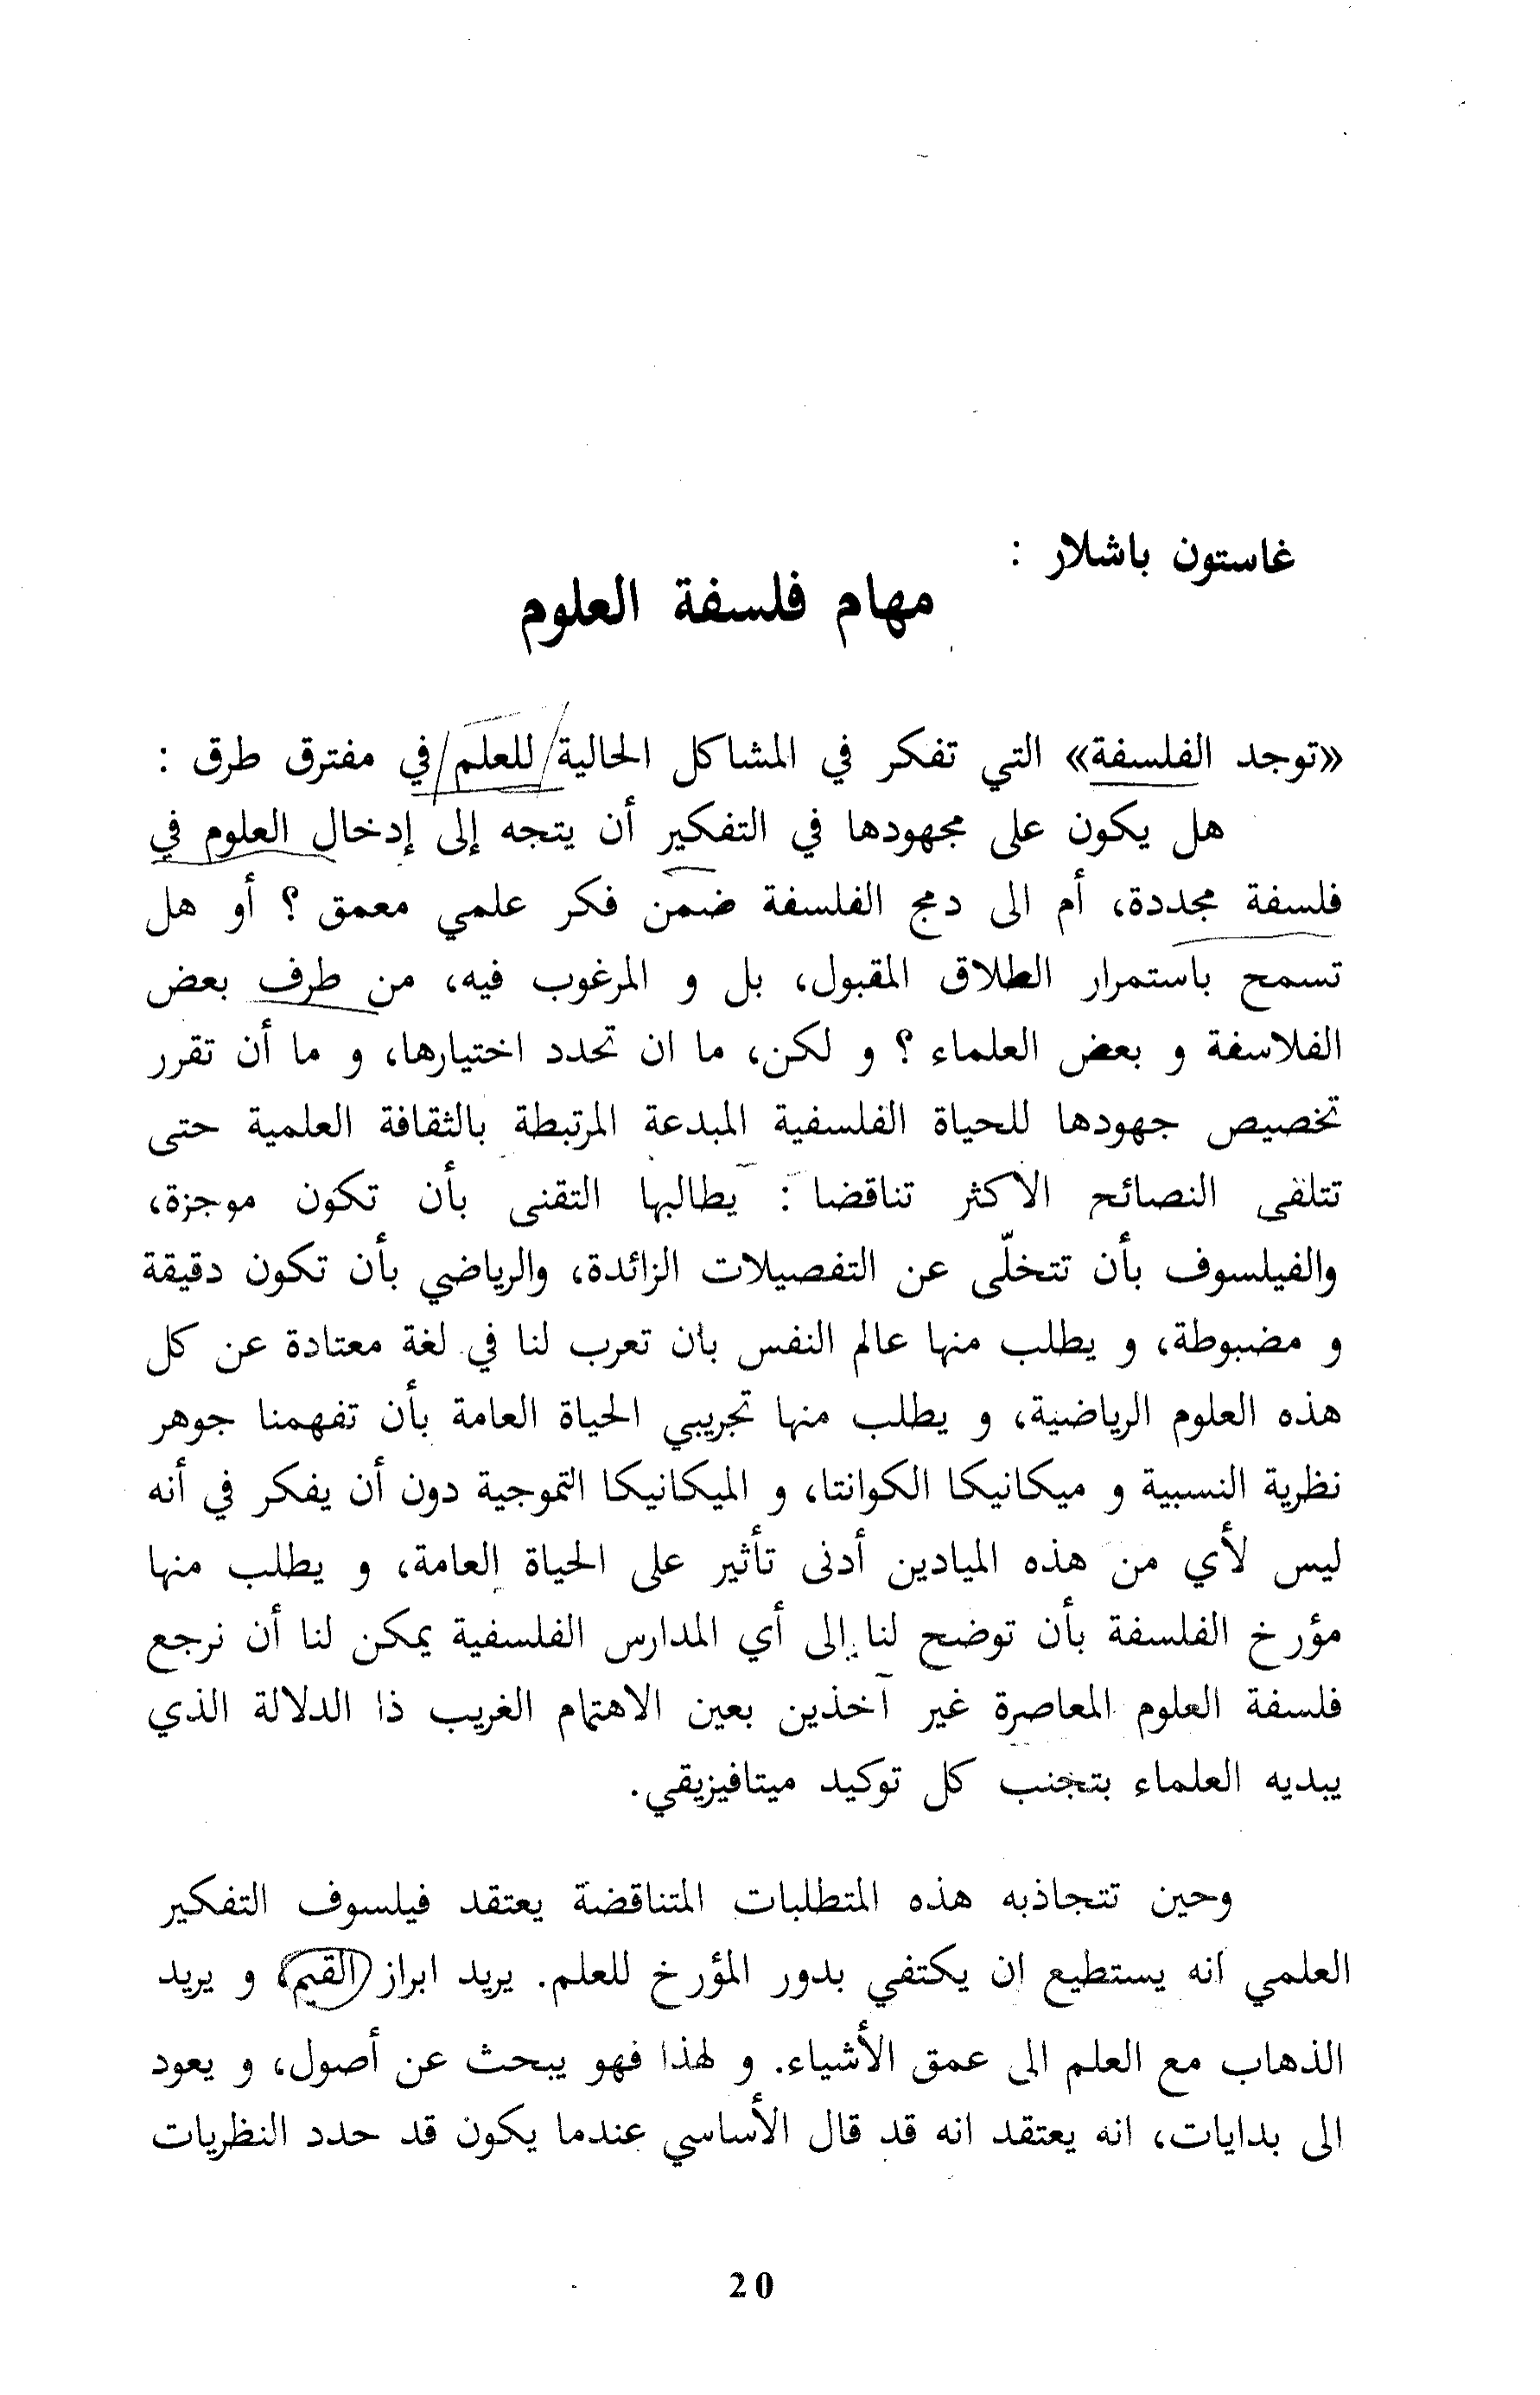 غاستون باشلار :
مهام فلسفة العلوم
«توجد الفلسفة» التي تفكر في المشاكل الحالية للعلم في مفترق طرق :
هل يكون على مجهودها في التفكير أن يتجه إلى إدخال العلوم في
فلسفة مجددة، أم الى دمج الفلسفة ضمن فكر علمي معمق ؟ أو هل
تسمح باستمرار الطلاق المقبول، بل و المرغوب فيه، من طرف بعض
الفلاسفة و بعض العلماء ؟ و لكن، ما ان تحدد اختيارها، و ما أن تقرر
تخصيص جهودها للحياة الفلسفية المبدعة المرتبطة بالثقافة العلمية حتى
تتلقى النصائح الاكثر تناقضا : يطالبها التقنى بأن تكون موجزة،
والفيلسوف بأن تتخلّى عن التفصيلات الزائدة، والرياضي بأن تكون دقيقة
و مضبوطة، و يطلب منها عالم النفس بان تعرب لنا في لغة معتادة عن كل
هذه العلوم الرياضية، و يطلب منها تجريبي الحياة العامة بأن تفهمنا جوهر
نظرية النسبية و ميكانيكا الكوانتا، و الميكانيكا التموجية دون أن يفكر في أنه
ليس لأي من هذه الميادين أدنى تأثير على الحياة العامة، و يطلب منها
مؤرخ الفلسفة بأن توضح لنا إلى أي المدارس الفلسفية يمكن لنا أن نرجع
فلسفة العلوم المعاصرة غير آخذين بعين الاهتمام الغريب ذا الدلالة الذي
يبديه العلماء بتجنب كل توكيد ميتافيزيقي.
وحين تتجاذبه هذه المتطلبات المتناقضة يعتقد فيلسوف التفكير
العلمي انه يستطيع ان يكتفي بدور المؤرخ للعلم. يريد ابراز القيم، و يريد
الذهاب مع العلم الى عمق الأشياء. و لهذا فهو يبحث عن أصول، و يعود
الى بدايات، انه يعتقد انه قد قال الأساسي عندما يكون قد حدد النظريات
20